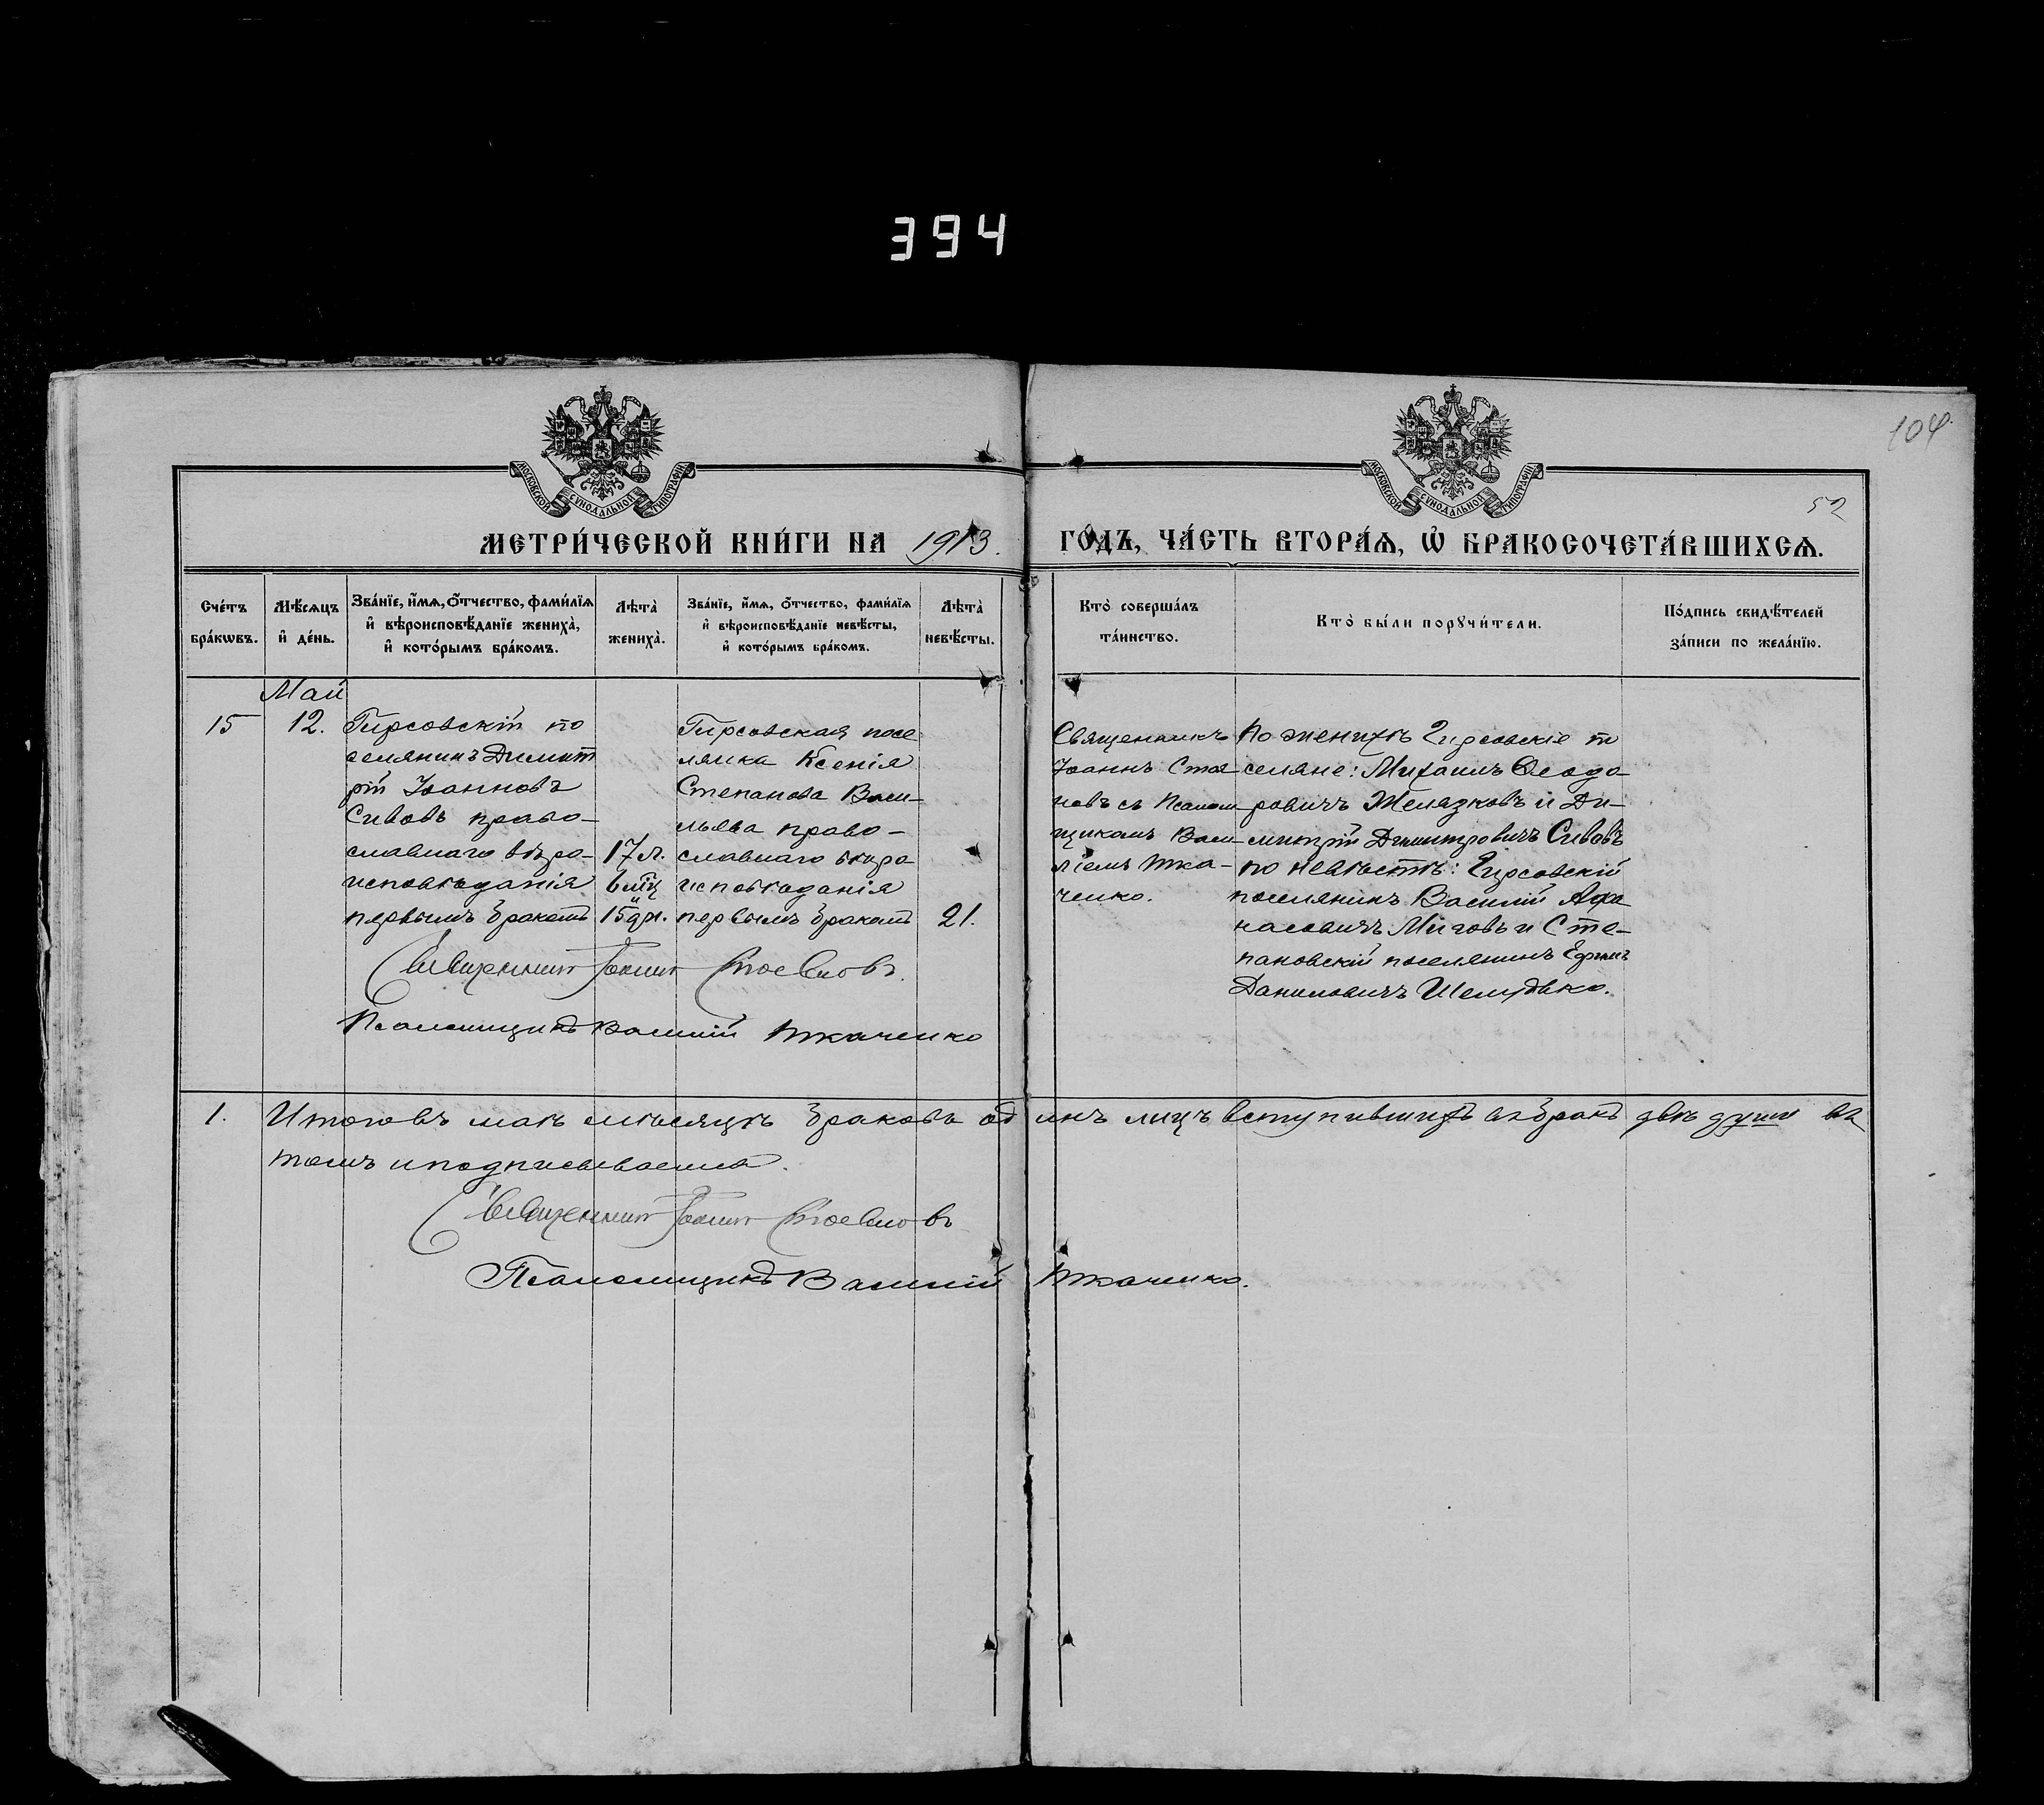 394
104
52
МОСКОВСКОЙ СѴНОДАЛЬНОЙ ТИПОГРАФІИ
МОСКОВСКОЙ СѴНОДАЛЬНОЙ ТИПОГРАФІИ
МЕТРИ́ЧЕСКОЙ КНИ́ГИ НА 1913. ГО́ДЪ, ЧА́СТЬ ВТОРА́Ѧ, Ѽ БРАКОСОЧЕТА́ВШИХСѦ.
Сче́тъ
бра́кѡвъ.
Мѣ́сяцъ
и҆ де́нь.
Зва́нїе, и҆́мѧ, ѻ҆́тчество, фами́лїѧ
и҆ вѣроисповѣ́данїе жениха̀,
и҆ кото́рымъ бра́комъ.
Лѣ́та̀
жениха̀.
Зва́нїе, и҆́мѧ, ѻ҆́тчество, фами́лїѧ
и҆ вѣроисповѣ́данїе невѣ́сты,
и҆ кото́рымъ бра́комъ.
Лѣ́та̀
невѣ́сты.
Кто̀ соверша́лъ
та́инство.
Кто̀ бы́ли порꙋчи́тели.
По́дпись свидѣ́телей
за́писи по жела́нїю.
Май
15
12.
Гирсовскій по
селянинъ Димит
рій Іоанновъ
Сивовъ право-
славнаго вѣро-
исповѣданія
первымъ бракомъ
17 л.
6 мц
и
15 дн.
Гирсовская посе
лянка Ксенія
Степанова Васи-
льева право-
славнаго вѣро
исповѣданія
первымъ бракомъ
21.
Священникъ Іоаннъ Стояновъ.
Псаломщикъ Василій Ткаченко
Священникъ
Іоаннъ Стоя
новъ съ Псалом
щикомъ Васи-
ліемъ Тка-
ченко.
По женихѣ Гирсовскіе по
селяне: Михаилъ Ѳеодо
ровичъ Желязковъ и Ди-
митрій Димитровичъ Сивовъ
по невѣстѣ: Гирсовскій
поселянинъ Василій Афа
насовичъ Миговъ и Сте-
пановскій поселянинъ Ефимъ
Даниловичъ Шелудько.
1. Итого въ маѣ мѣсяцѣ браковъ одинъ лицъ вступившихъ въ бракъ двѣ души въ
томъ и подписываемся.
Священникъ Іоаннъ Стояновъ
Псаломщикъ Василій Ткаченко.